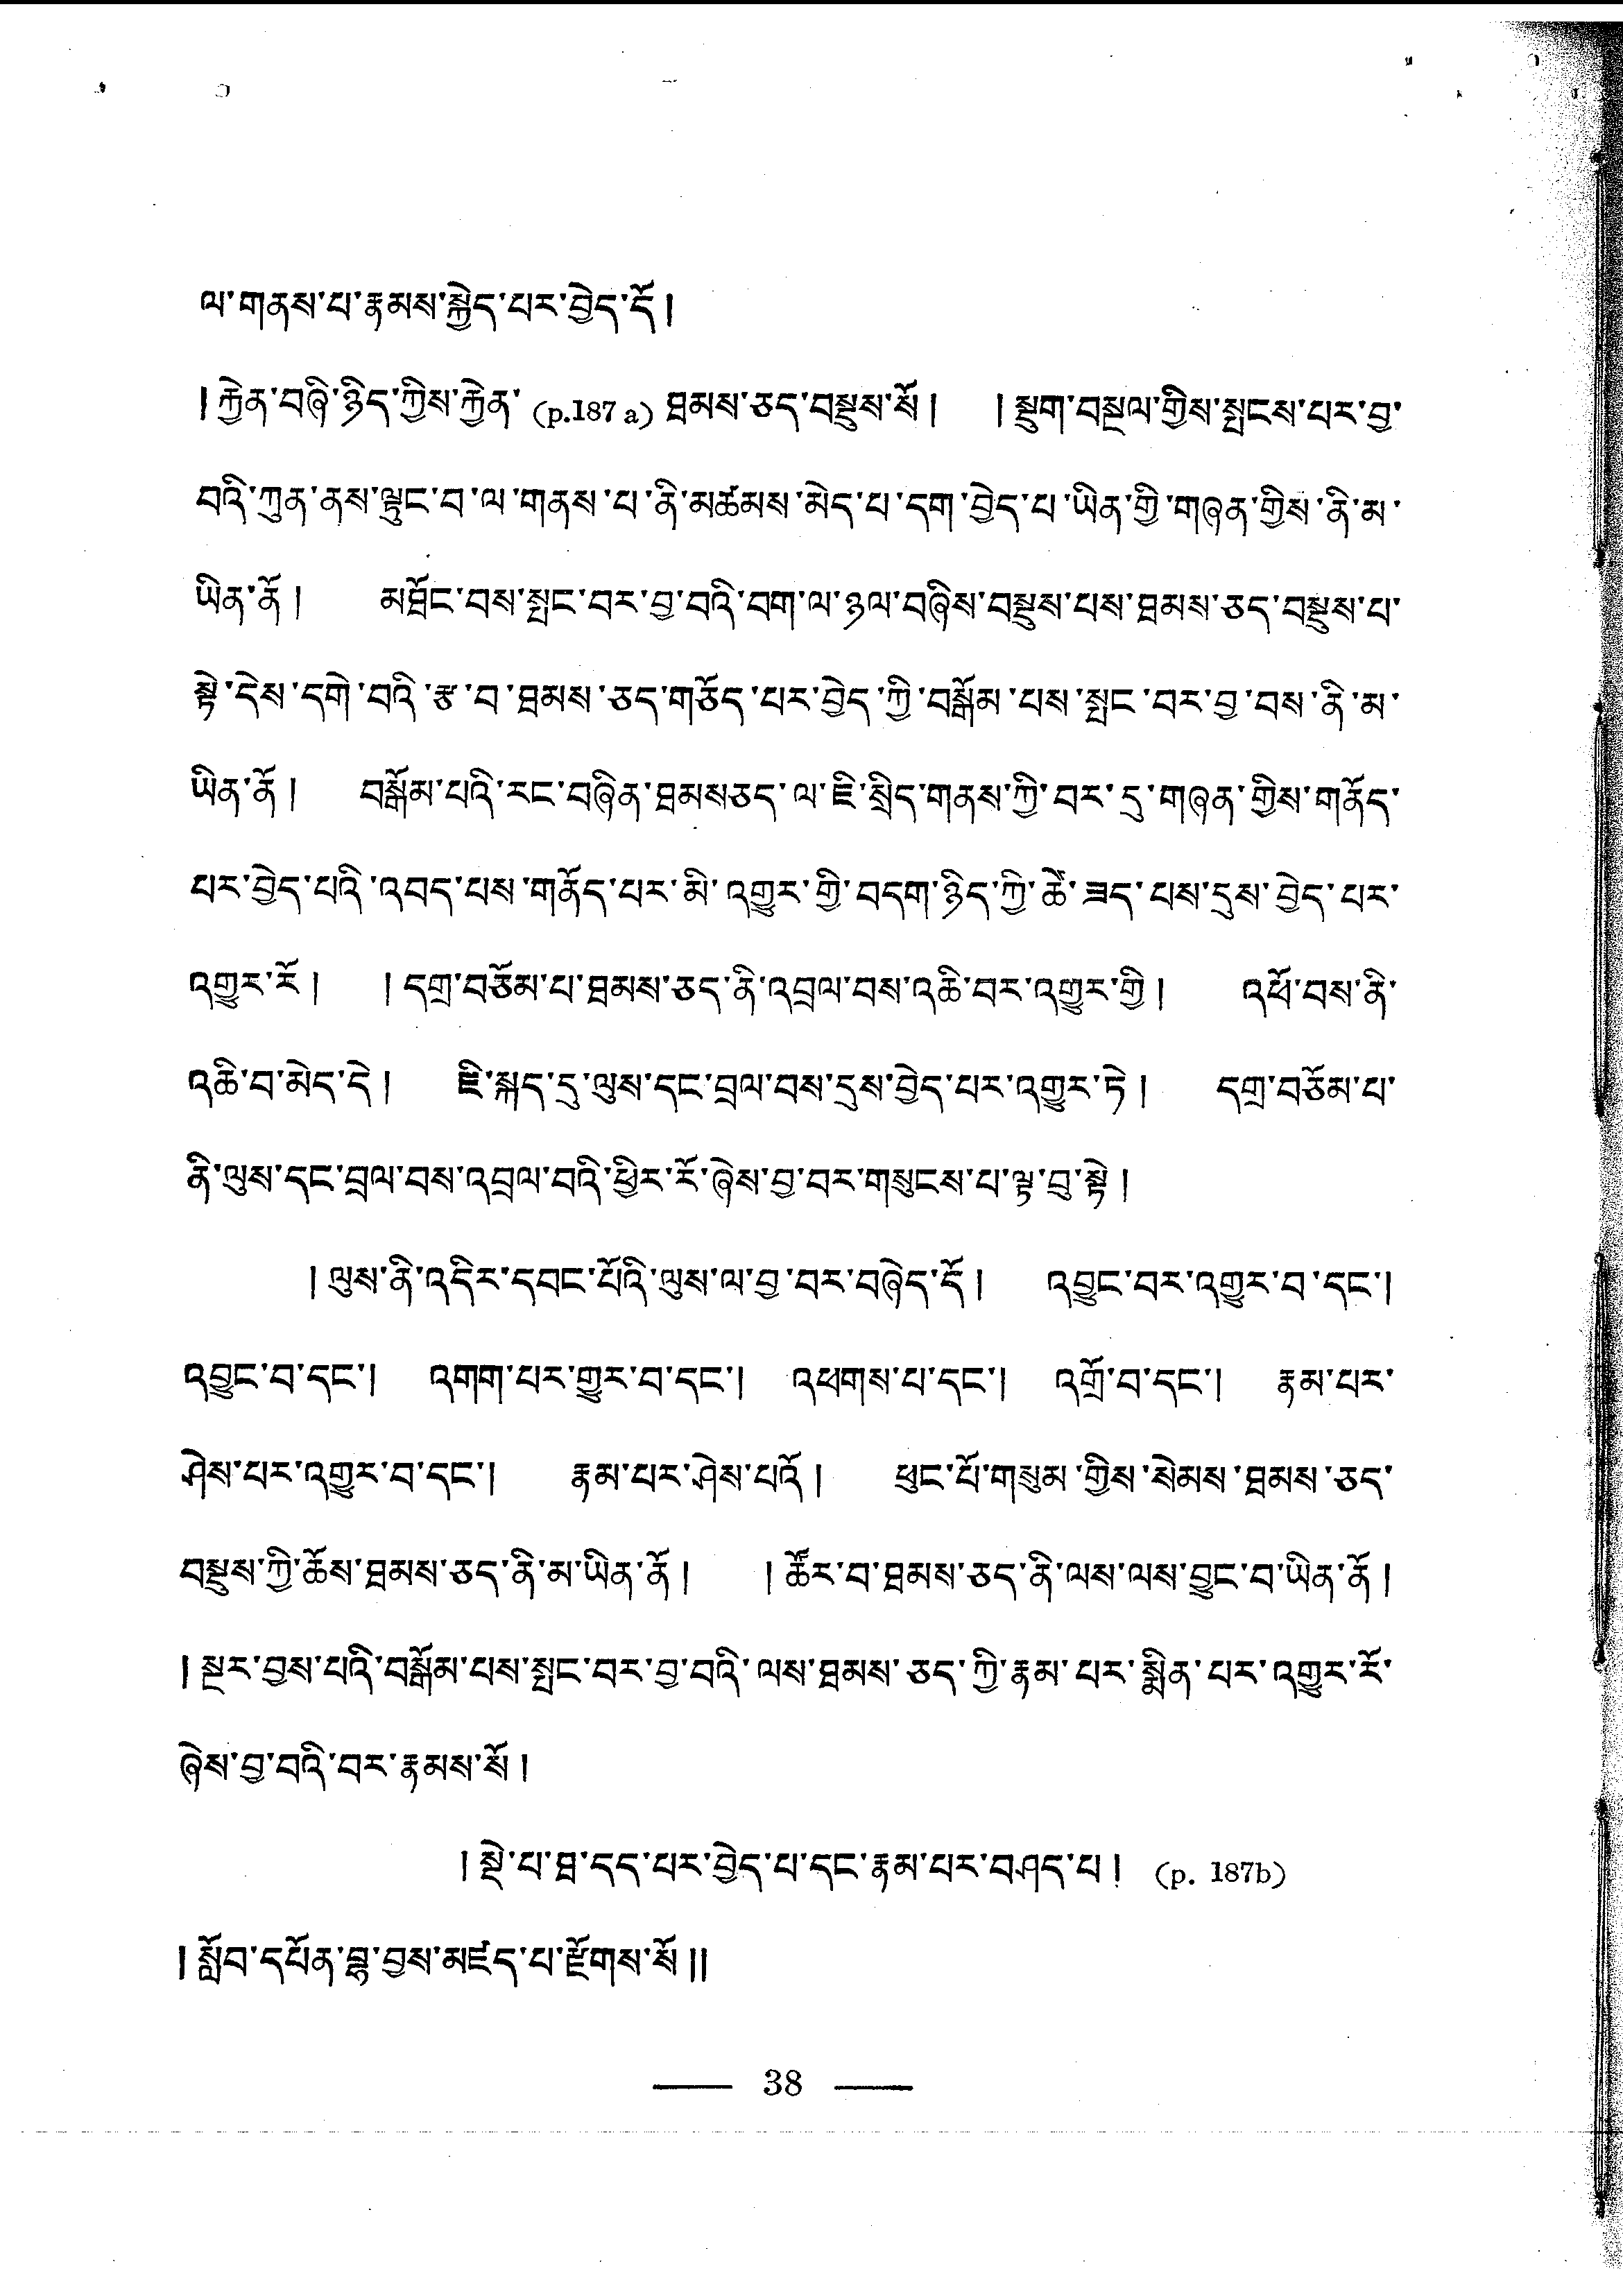 ལ་གནས་པ་རྣམས་སྐྱེད་པར་བྱེད་དོ།
།རྐྱེན་བཞི་ཉིད་ཀྱིས་རྐྱེན་ (p.187 a) ཐམས་ཅད་བསྡུས་སོ། །སྡུག་བསྔལ་གྱིས་སྤངས་པར་བྱ་
བའི་ཀུན་ནས་ལྟུང་བ་ལ་གནས་པ་ནི་མཚམས་མེད་པ་དག་བྱེད་པ་ཡིན་གྱི་གཞན་གྱིས་ནི་མ་
ཡིན་ནོ། མཐོང་བས་སྤང་བར་བྱ་བའི་བག་ལ་ཉལ་བཞིས་བསྡུས་པས་ཐམས་ཅད་བསྡུས་པ་
སྟེ་དེས་དགེ་བའི་རྩ་བ་ཐམས་ཅད་གཅོད་པར་བྱེད་ཀྱི་བསྒོམ་པས་སྤང་བར་བྱ་བས་ནི་མ་
ཡིན་ནོ། བསྒོམ་པའི་རང་བཞིན་ཐམསཅད་ལ་ཇི་སྲིད་གནས་ཀྱི་བར་དུ་གཞན་གྱིས་གནོད་
པར་བྱེད་པའི་འབད་པས་གནོད་པར་མི་འགྱུར་གྱི་བདག་ཉིད་ཀྱི་ཚེ་ཟད་པས་དུས་བྱེད་པར་
འགྱུར་རོ། །དགྲ་བཅོམ་པ་ཐམས་ཅད་ནི་འབྲལ་བས་འཆི་བར་འགྱུར་གྱི། འཕོ་བས་ནི་
འཆི་བ་མེད་དེ། ཇི་སྐད་དུ་ལུས་དང་བྲལ་བས་དུས་བྱེད་པར་འགྱུར་ཏེ། དགྲ་བཅོམ་པ་
ནི་ལུས་དང་བྲལ་བས་འབྲལ་བའི་ཕྱིར་རོ་ཞེས་བྱ་བར་གསུངས་པ་ལྟ་བུ་སྟེ།
།ལུས་ནི་འདིར་དབང་པོའི་ལུས་ལ་བྱ་བར་བཞེད་དོ། འབྱུང་བར་འགྱུར་བ་དང་།
འབྱུང་བ་དང་། འགག་པར་གྱུར་བ་དང་། འཕགས་པ་དང་། འགྲོ་བ་དང་། རྣམ་པར་
ཤེས་པར་འགྱུར་བ་དང་། རྣམ་པར་ཤེས་པའོ། ཕུང་པོ་གསུམ་གྱིས་སེམས་ཐམས་ཅད་
བསྡུས་ཀྱི་ཆོས་ཐམས་ཅད་ནི་མ་ཡིན་ནོ། །ཚོར་བ་ཐམས་ཅད་ནི་ལས་ལས་བྱུང་བ་ཡིན་ནོ།
།སྔར་བྱས་པའི་བསྒོམ་པས་སྤང་བར་བྱ་བའི་ལས་ཐམས་ཅད་ཀྱི་རྣམ་པར་སྨིན་པར་འགྱུར་རོ་
ཞེས་བྱ་བའི་བར་རྣམས་སོ།
།སྡེ་པ་ཐ་དད་པར་བྱེད་པ་དང་རྣམ་པར་བཤད་པ། (p. 187b)
།སློབ་དཔོན་བྷ་བྱས་མཛད་པ་རྫོགས་སོ།།
38